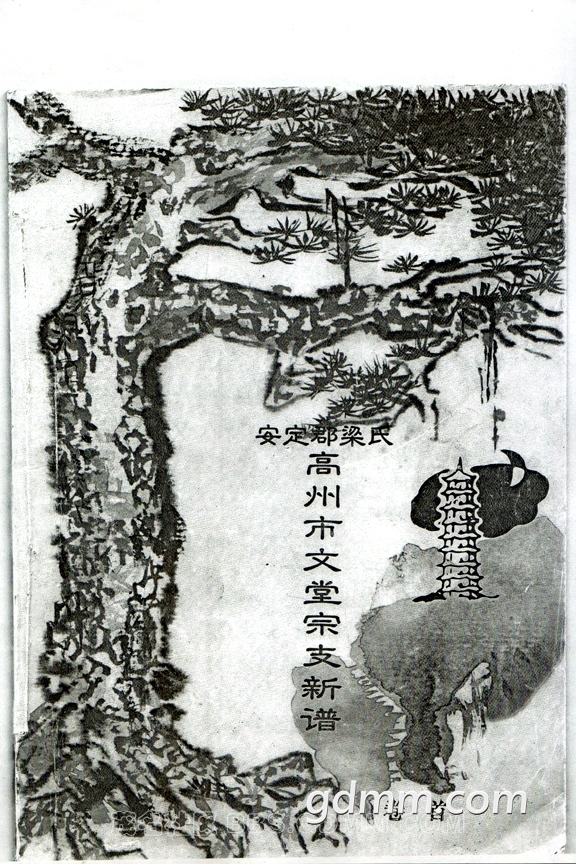 安定郡梁氏
高州市文堂宗支新谱
卷首
gdmm.com